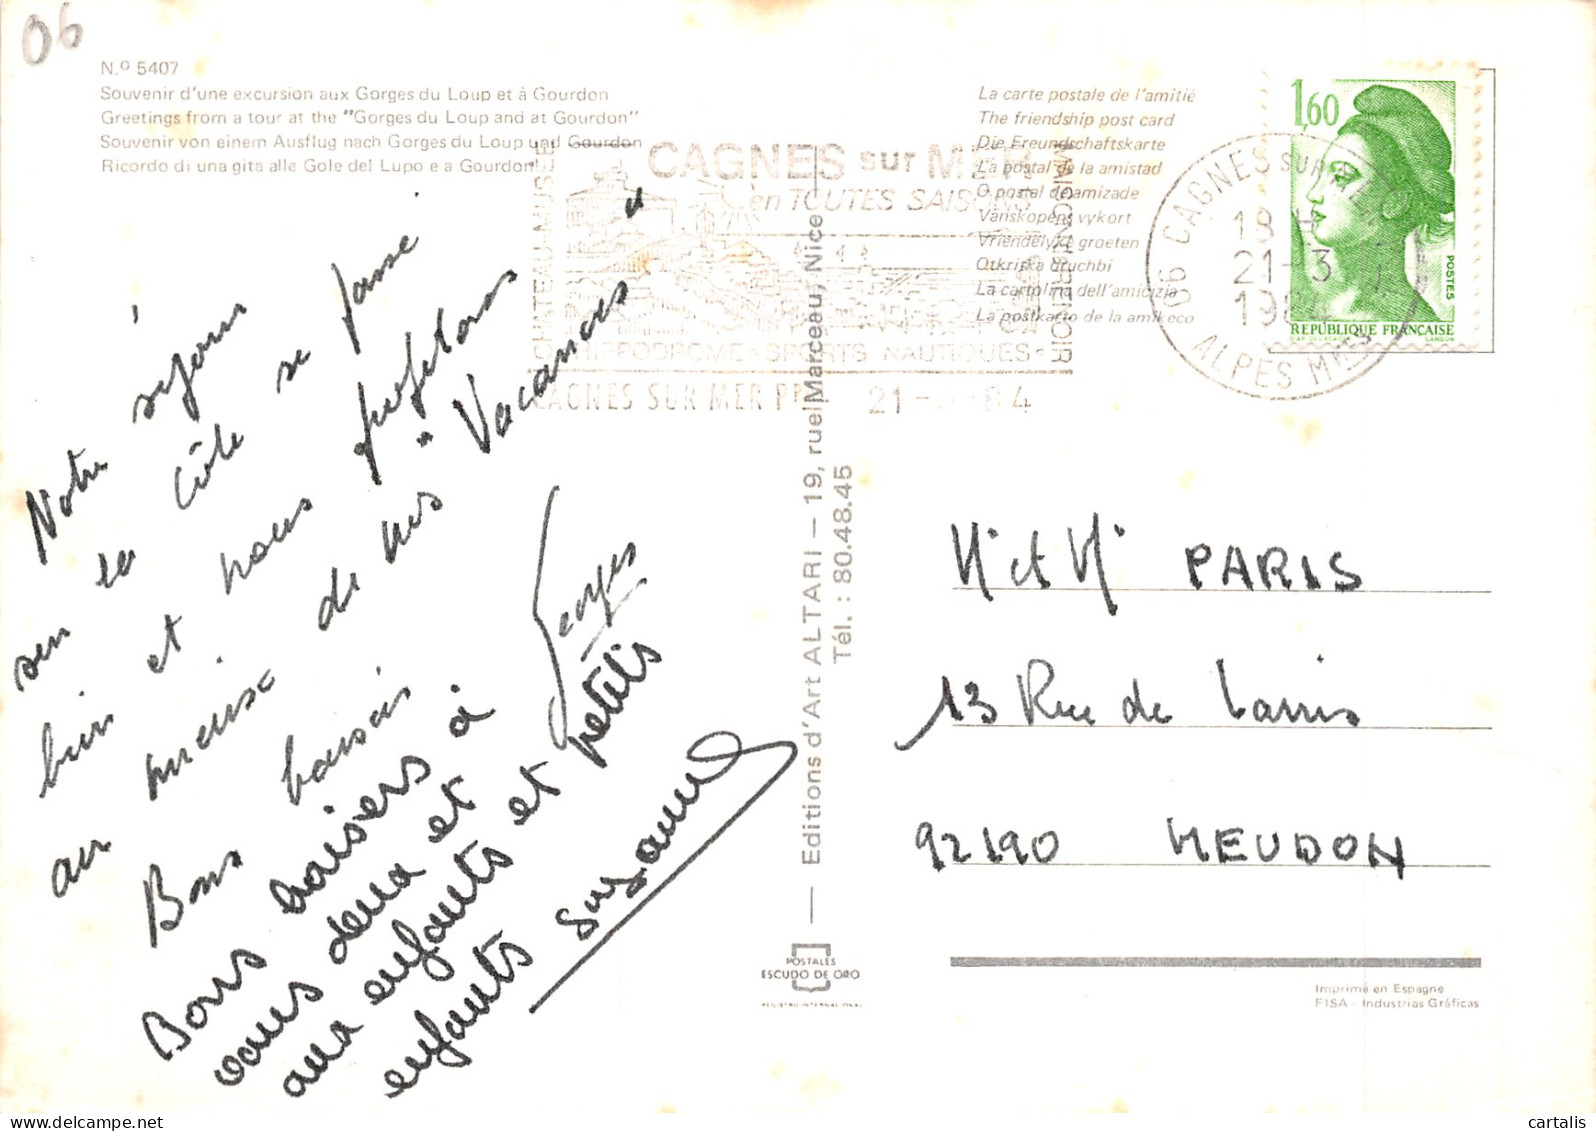 06
N.º 5407
Souvenir d'une excursion aux Gorges du Loup et à Gourdon
Greetings from a tour at the "Gorges du Loup and at Gourdon"
Souvenir von einem Ausflug nach Gorges du Loup und Gourdon
Ricordo di una gita alle Gole del Lupo e a Gourdon
Notre séjour
sur la côte se passe
bien et nous profitons
au mieux de nos "Vacances"
Bons baisers
Georges
Bons baisers à
vous deux et
aux enfants et petits
enfants Suzanne
CHATEAU MUSEE
CAGNES sur MER
en TOUTES SAISONS
HIPPODROME - SPORTS NAUTIQUES -
MAISON RENOIR
CAGNES SUR MER PPL 21-3-84
La carte postale de l'amitié
The friendship post card
Die Freundschaftskarte
La postal de la amistad
O postal de amizade
Vänskapens vykort
Vriendelyke groeten
Otkritka druchbi
La cartolina dell'amicizia
La postkarto de la amikeco
06 CAGNES SUR MER
18 H
21-3
1984
ALPES MMES
1,60
POSTES
REPUBLIQUE FRANÇAISE
CAP DELACROIX GANDON
Editions d'Art ALTARI – 19, rue Marceau, Nice
Tél. : 80.48.45
POSTALES
ESCUDO DE ORO
REGISTRO INTERNACIONAL
M. et M. PARIS
13 Rue de Larris
92190 MEUDON
Imprimé en Espagne
FISA - Industrias Gráficas
cartalis